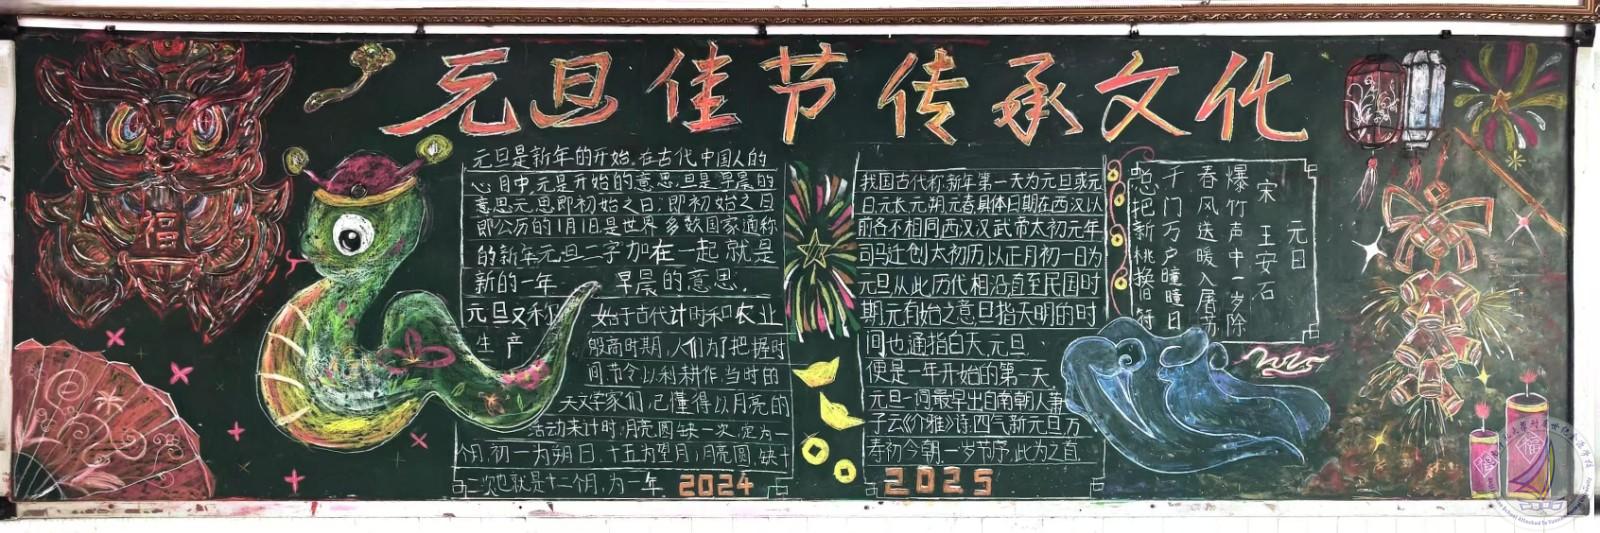 元旦佳节传承文化
福
元旦是新年的开始.在古代中国人的
心目中,元是开始的意思,旦是早晨的
意思元思即初始之日;即初始之日
即公历的1月1日是世界多数国家通称
的新年元旦二字加在一起就是
新的一年 早晨的意思.
元旦又称 始于古代计时和农业
生产
殷商时期,人们为了把握时
间,节令,以利耕作,当时的
天文学家们,已懂得以月亮的
活动来计时,月亮圆缺一次,定为一
个月,初一为朔日,十五为望月;月亮圆缺十
二次也就是十二个月,为一年
2024
我国古代称新年第一天为元旦或元
日元长,元朔,元春,具体日期在西汉以
前各不相同西汉汉武帝太初元年
司马迁创太初历,以正月初一日为
元旦从此历代相沿,直至民国时
期,元有始之意,旦指天明的时
间也通指白天,元旦.
便是一年开始的第一天.
元旦一词最早出自南朝人萧
子云《介雅》诗:四气新元旦,万
寿初今朝一岁节序,此为之首.
2025
元日
宋 王安石
爆竹声中一岁除
春风送暖入屠苏
千门万户曈曈日
总把新桃换旧符
福
福